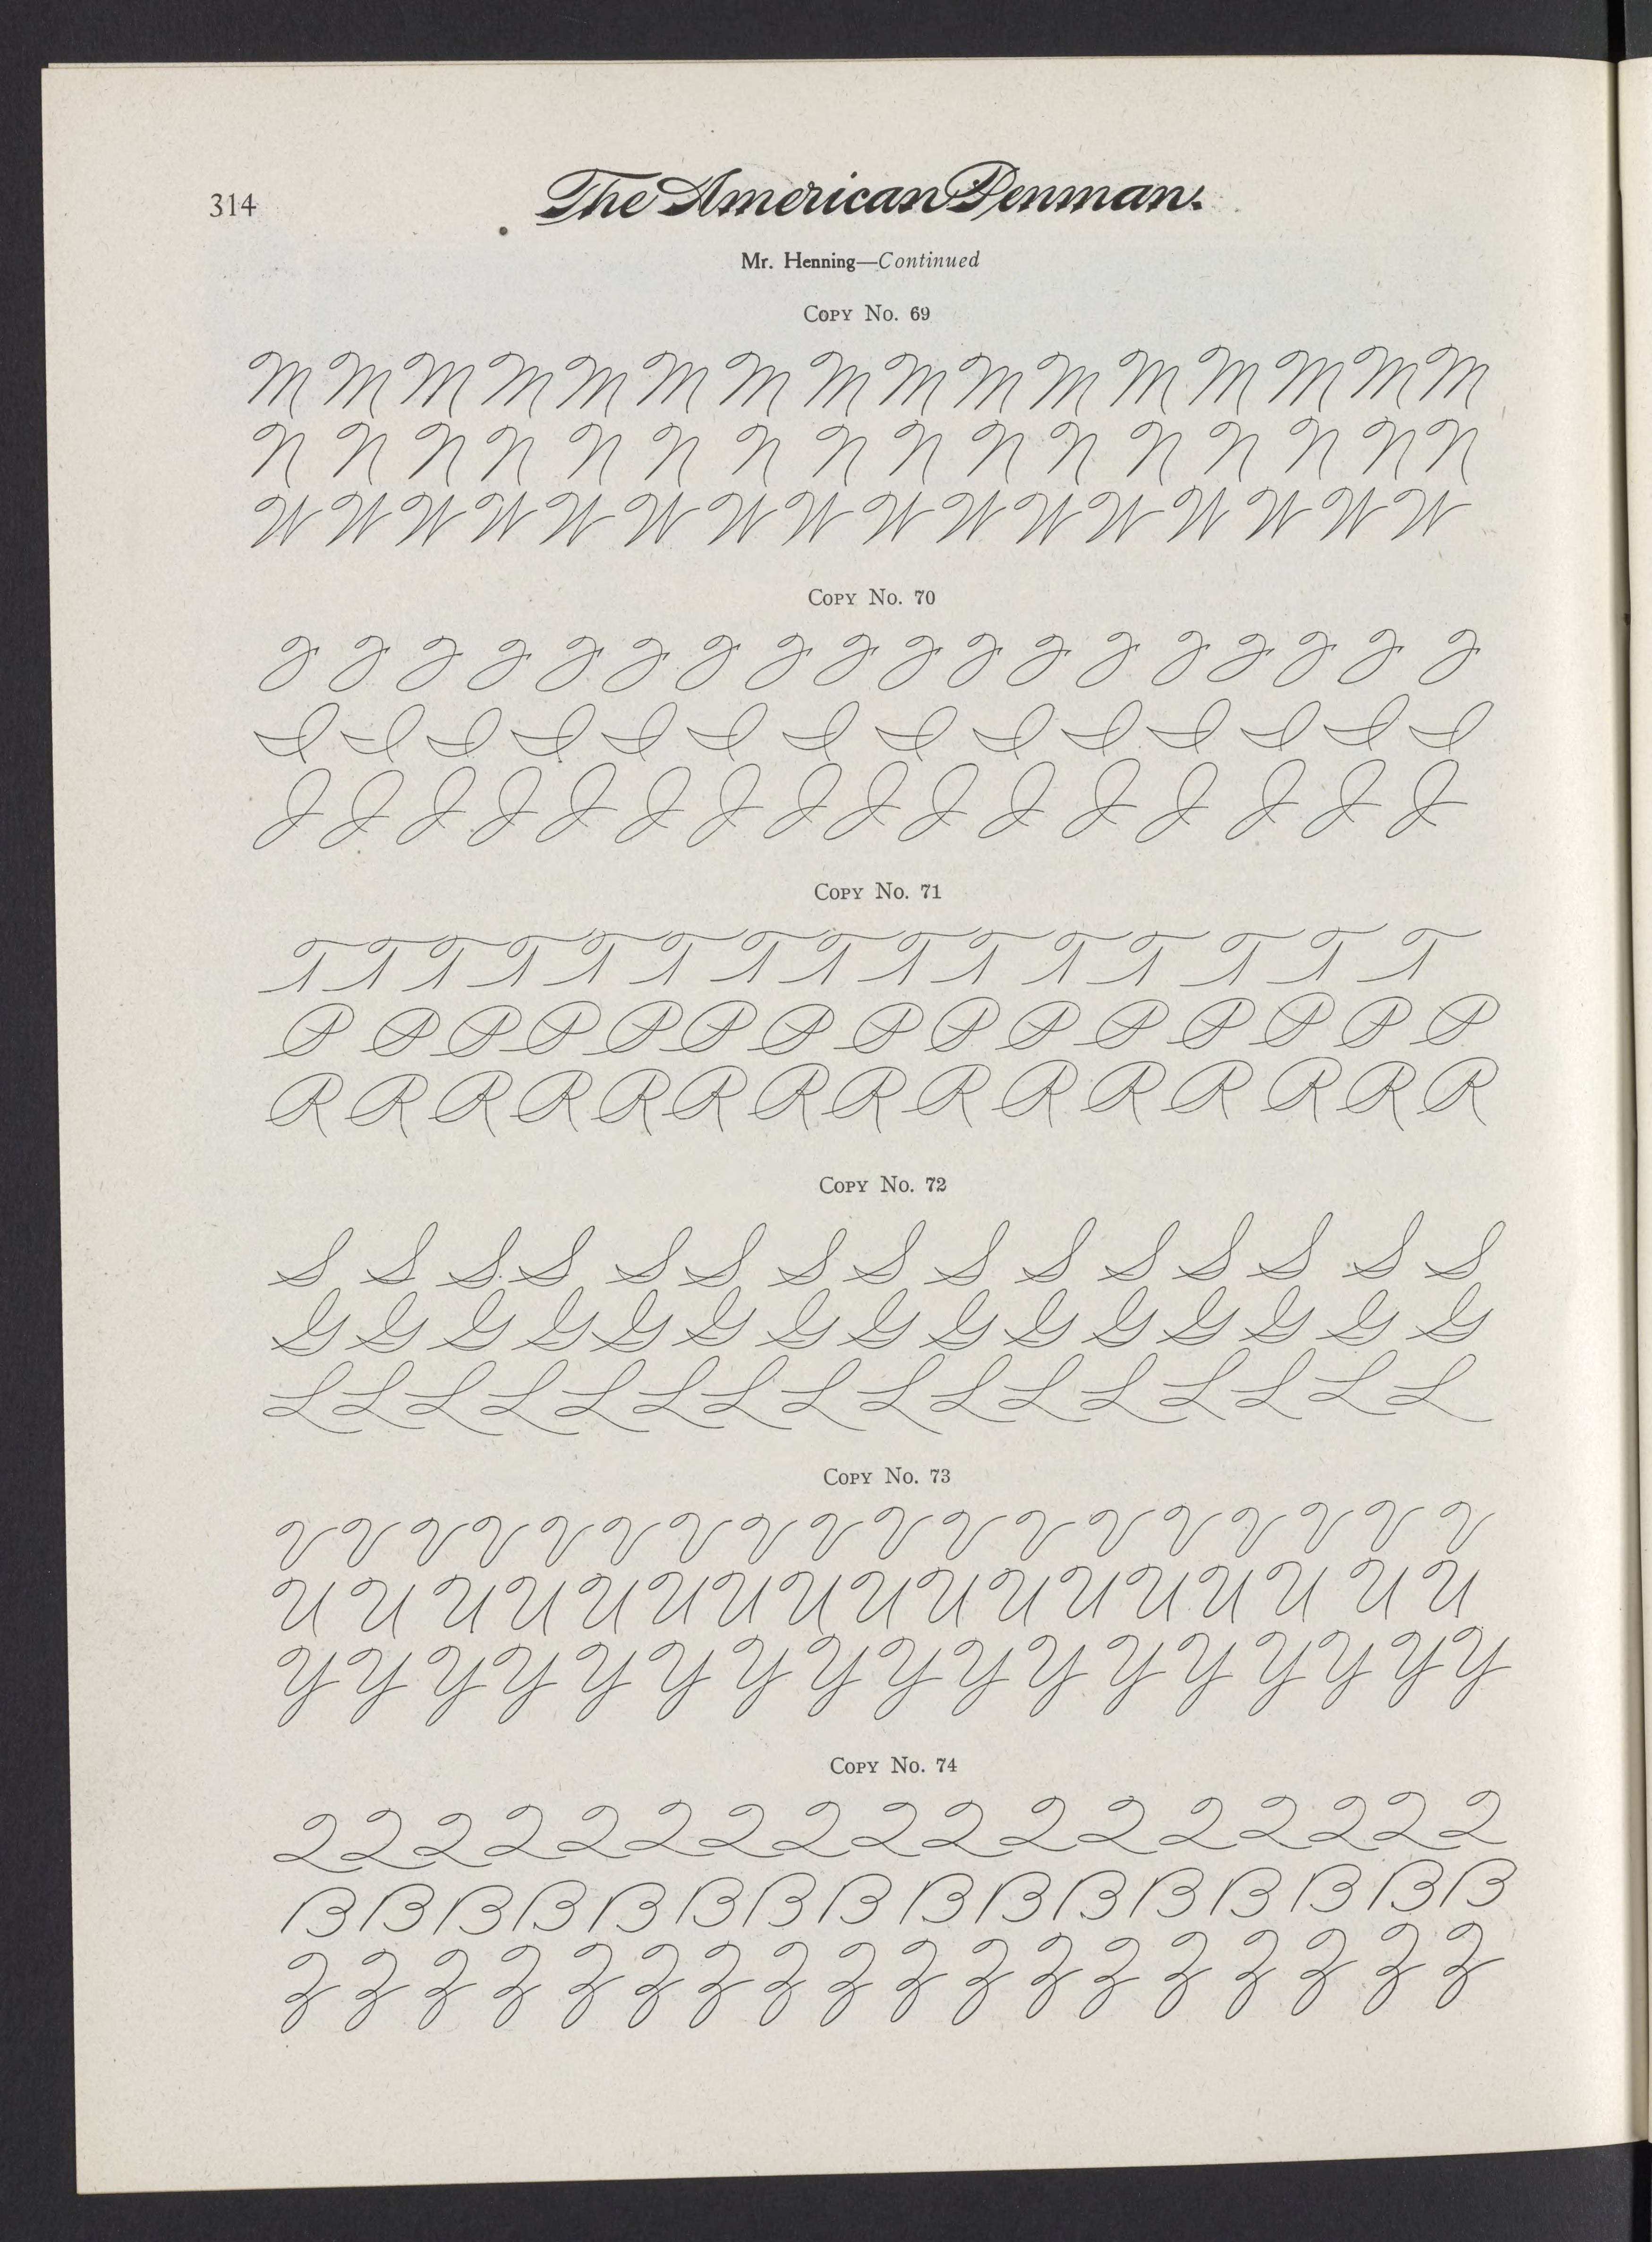 314
The American Penman.
Mr. Henning—Continued
Copy No. 69
M M M M M M M M M M M M M M M M
N N N N N N N N N N N N N N N N
W W W W W W W W W W W W W W W W
Copy No. 70
I I I I I I I I I I I I I I
J J J J J J J J J J J J J J J J
Copy No. 71
T T T T T T T T T T T T T T T
P P P P P P P P P P P P P P P
R R R R R R R R R R R R R R R
Copy No. 72
S S S S S S S S S S S S S S S
G G G G G G G G G G G G G G G
L L L L L L L L L L L L L L L L
Copy No. 73
V V V V V V V V V V V V V V V V V V
U U U U U U U U U U U U U U U U U
Y Y Y Y Y Y Y Y Y Y Y Y Y Y Y Y Y
Copy No. 74
Q Q Q Q Q Q Q Q Q Q Q Q Q Q Q Q Q
B B B B B B B B B B B B B B B B
Z Z Z Z Z Z Z Z Z Z Z Z Z Z Z Z Z Z